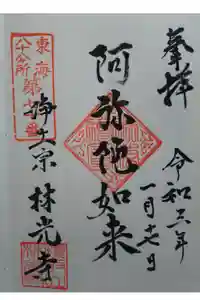 奉拝
令和三年
一月十七日
阿弥陀如来
東海
八十八ヶ所
浄土宗 林光寺